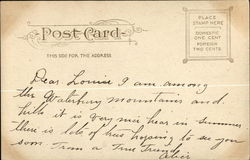 Post Card
THIS SIDE FOR THE ADDRESS
PLACE
STAMP HERE
DOMESTIC
ONE CENT
FOREIGN
TWO CENTS
Dear Louise I am among
the Waterbury mountains and
hills it is very nice hear in summer
there is lots of hoping to see you
soon From a True Friend